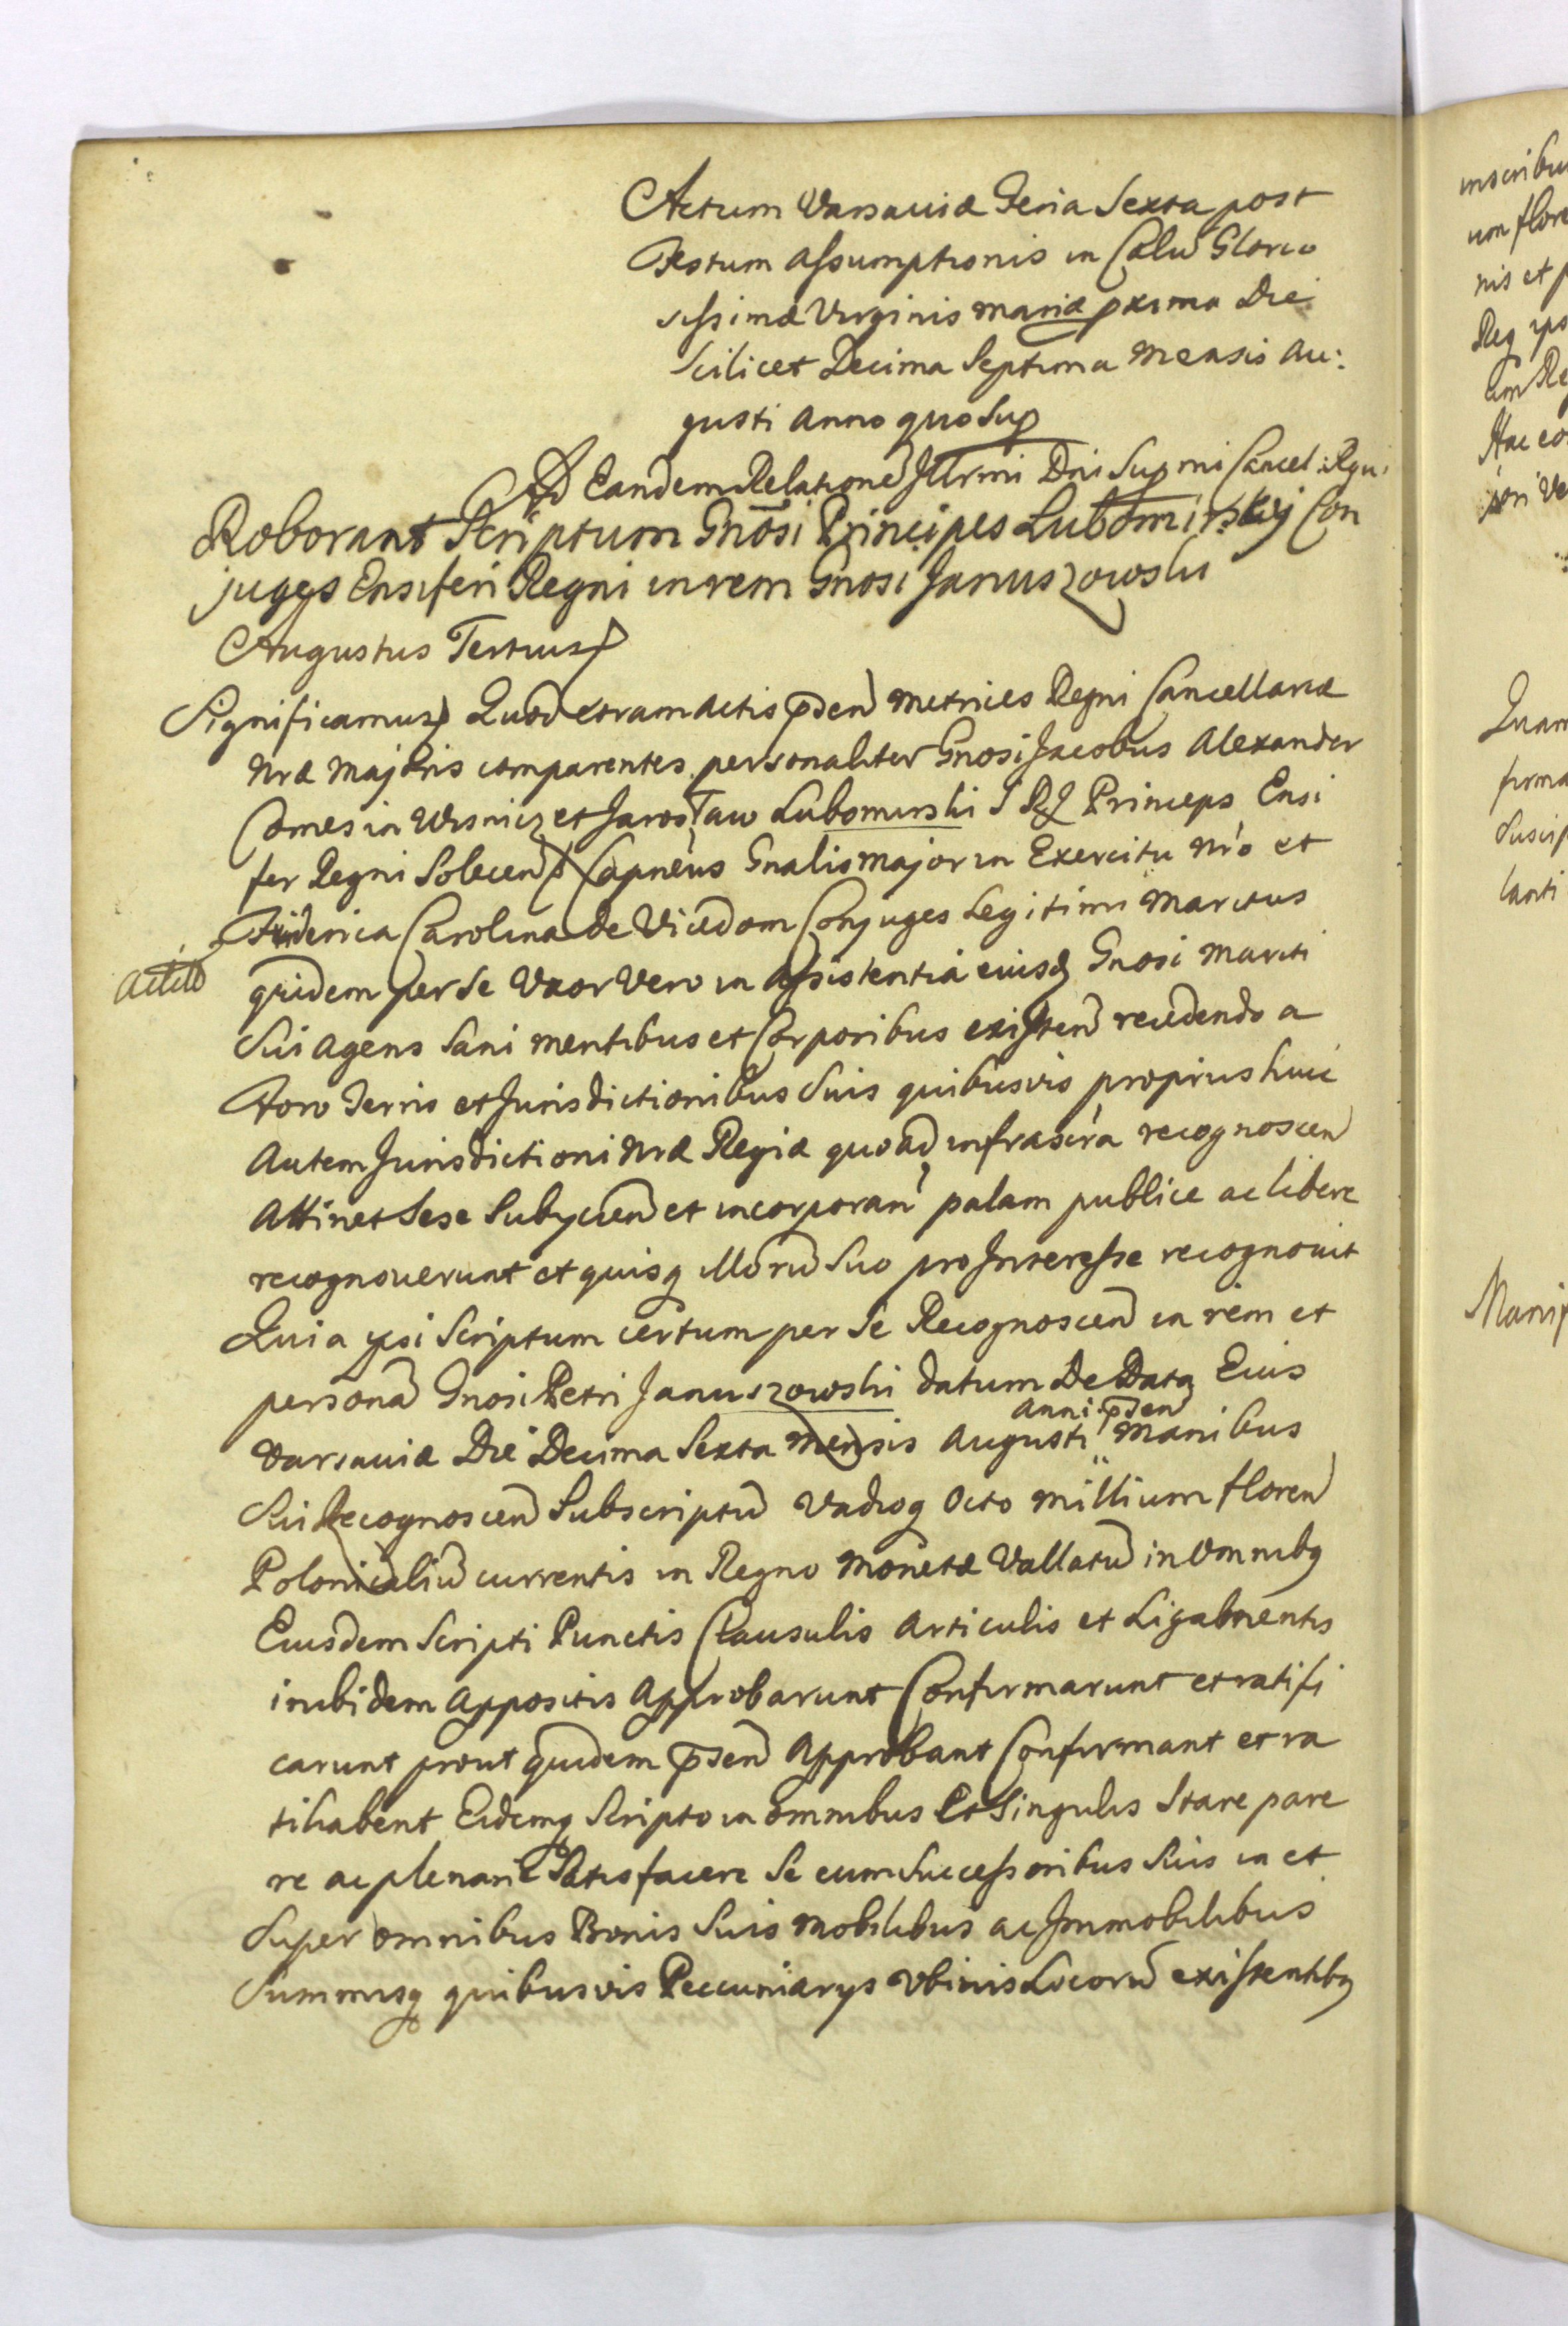 Actum Varsaviæ Feria Sexta post
Festum Assumptionis in Cælū Glorio
sissimæ Virginis Mariæ pxima Die
Scilicet Decima Septima Mensis Au:
gusti Anno quo Sup
Ad Eandem Relationē Illrmi Dni Supmi Cancel: Rgni
Roborant Scriptum Gnōsi Principes Lubomirskij Con
juges Ensiferi Regni in rem Gnosi Januszowski
Augustus Tertius
Significamus Quod coram Actis p̄sen Metrices Regni Cancellariæ
Nræ Majoris comparentes personaliter Gnosi Jacobus Alexander
Comes in Wisnicz et Jarosław Lubomirski S R J Princeps Ensi
fer Regni Solecen Capneus Gnalis Major in Exercitu Nro et
Friderica Carolina de Vicedom Conjuges Legitimi Maritus
Actito
quidem per se Uxor Vero in Assistentia eiusd Gnosi Mariti
Sui Agens Sani Mentibus et Corporibus existen recedendo a
Foro Terris et Jurisdictionibus Suis quibusvis proprius huic
Autem Jurisdictioni Nræ Regiæ quoad infrascra recognoscen
Attinet Sese Subyicien et incorporan palam publice ac libere
recognoverunt et quisq illorū Suo pro Interesse recognovit
Quia ipsi Scriptum certum per Se Recognoscen in rem et
personā Gnosi Petri Januszowski datum De Data Eius
Anni p̄sen
Varsaviæ Die Decima Sexta Mensis Augusti Manibus
Sui Recognoscen Subscriptū Vadioq Octo Millium floren
Polonicaliū currentis in Regno Monetæ Vallatū in Omnibq
Eiusdem Scripti Punctis Clausulis Articulis et Ligamentis
inibidem Appositis Approbarunt Confirmarunt et ratifi
carunt prout quidem p̄sen Approbant Confirmant et ra
tihabent Eidemq Scripto in omnibus Et Singulis Stare pare
re ac plenarie Satisfacere Se cum Successoribus Suis in et
Super omnibus Bonis Suis Mobilibus ac Immobilibus
Summisq quibusvis Peccuniarys Ubivis Locorū existentibq
inscribu
um flore
nis et p
Reg ips
um Re
Hac co
Quam
firma
Suscip
lanti
Manif